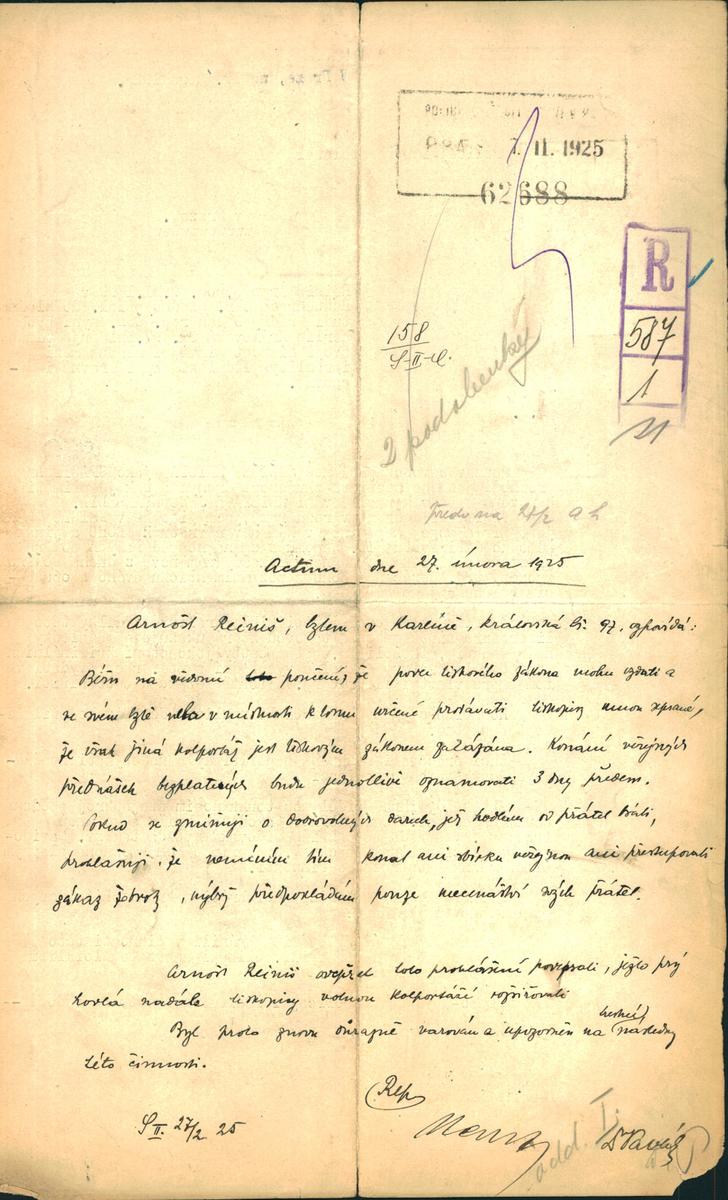 7. II. 1925
62688
R
587
1
158
S-II-
2 podobenky
27/2
Actum dne 27. února 1925
Arnošt Reiniš, bytem v Karlíně, Královská tř. 97, :
Béřu na vědomí poučení, že podle tiskového zákona mohu vydati a
ve svém bytě neb v místnosti k tomu určené prodávati tiskopisy mnou ,
že však jiná kolportáž jest tiskovým zákonem zakázána. Konání veřejných
přednášek bezplatných budu jednotlivě oznamovati 3 dny předem.
Pokud se zmiňuji o dobrovolných darech, jež hodlám od přátel bráti,
prohlašuji, že nemíním tím konat ani sbírku veřejnou ani přestupovati
zákaz žebroty, nýbrž předpokládám pouze mecenášství svých přátel.
Arnošt Reiniš odepřel toto prohlášení podepsati, ježto prý
hodlá nadále tiskopisy volnou kolportáží rozšiřovati
Byl proto znovu důrazně varován a upozorněn na trestní následky
této činnosti.
S II. 27/2 25
add. I.